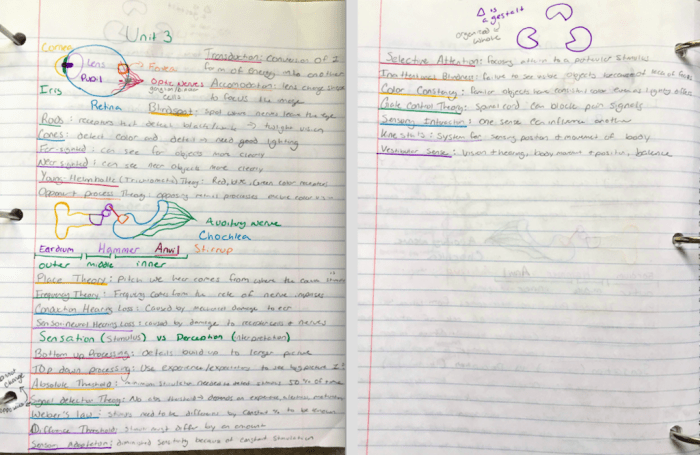 Unit 3
Cornea
Lens
Pupil
Iris
Fovea
Optic Nerves
ganglion
cells
Retina
Transduction: conversion of 1
form of energy into another
Accomodation: lens change
to focus the image
Blindspot: spot where nerves leave the eye
Rods: receptors that detect black → twilight vision
Cones: detect color and detail need good lighting
Far sighted: can see far objects more clearly
Near sighted: can see near objects more clearly
Young-Helmholtz (Trichromatic) Theory: Red, blue, Green color receptors
Opponent process Theory: opposing retinal processes
Auditory Nerve
Chochlea
Eardrum Hammer Anvil Stirrup
outer middle inner
Place Theory: Pitch we hear comes from where the
Frequency Theory: Frequency comes from the rate of nerve impulses
Conduction Hearing Loss: Caused by mechanical damage to ear
Sensorineural Hearing Loss: caused by damage to nerves
Sensation (Stimulus) vs Perception (Interpretation)
Bottom Up Processing: details build up to larger picture
Top down processing: Use experience/expectations to
Absolute Threshold: minimum stimulation needed to detect stimulus 50% of time
Signal detector Theory: No
Weber's law: Stimuli need to be different by constant % to be
Difference Threshold: must differ by an amount
Sensory Adaptation: diminished sensitivity because of constant stimulation
is
a gestalt
organized
whole
Selective Attention: focusing attention to a particular stimulus
Inattentional Blindness: failure to see visible objects because of lack of focus
Color Constancy: Familiar objects have consistent color
Gate Control Theory: Spinal cord can block pain signals
Sensory Interaction: one sense can influence another
Kinesthesis: System for sensing position + movement of body
Vestibular Sense: Vision + hearing, body movement + position, balance